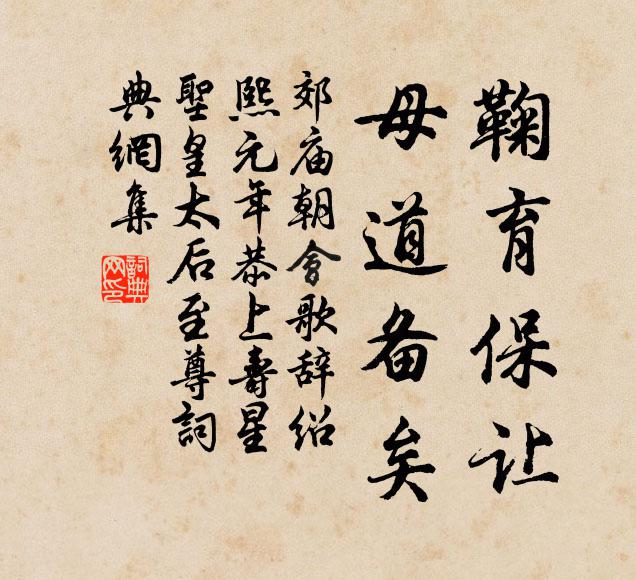 鞠育保让
母道备矣
郊庙朝會歌辞绍
熙元年恭上壽星
聖皇太后至尊詞
典網集
詞典網印